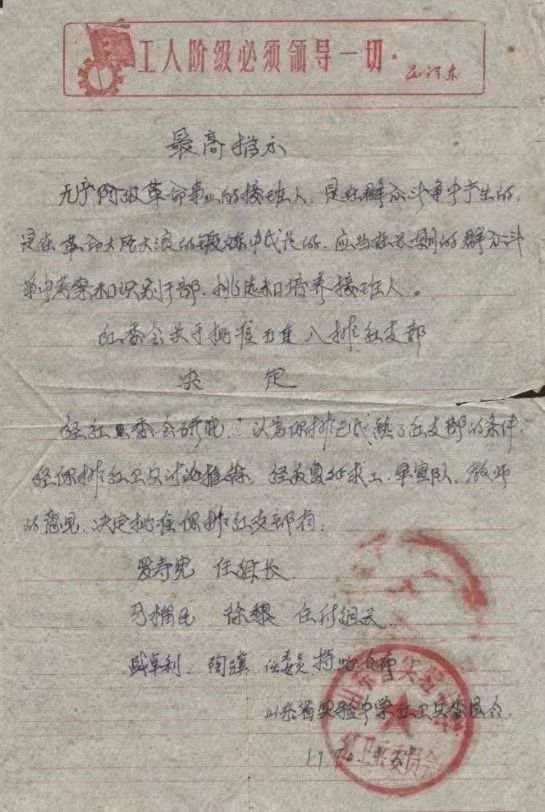 工人阶级必须领导一切。 毛泽东
最高指示
无产阶级革命事业的接班人，是在群众斗争中产生的，
是在革命大风大浪的锻炼中成长的，应当在长期的群众斗
争中考察和识别干部，挑选和培养接班人。
红委会关于批准五连八排红支部
决 定
经红卫委会研究，认为你排已成熟了红支部的条件，
经你排红卫兵讨论推荐，经反复征求工、军宣队、教师
的意见，决定批准你排红支部有：
任组长
徐 任付组长
盛卓利、陶 任委员，特此公布
山东省实验中学红卫兵委员会
山东省实验中学
红卫兵委员会